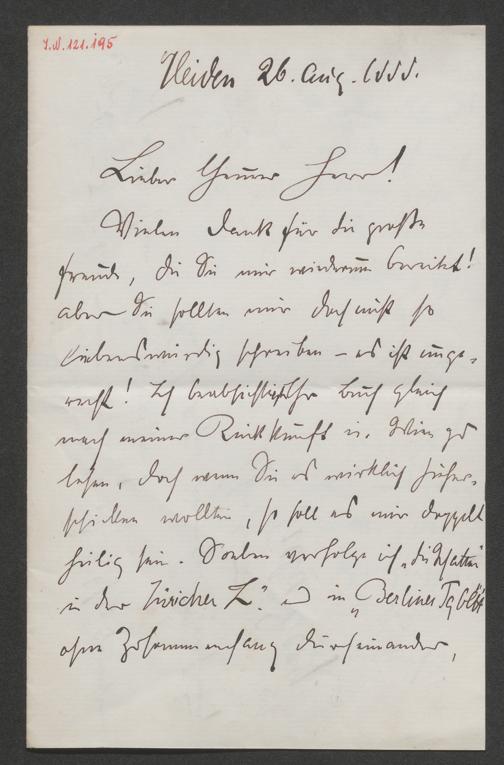 I.N. 121.195
Heiden 26. Aug. 1888.
Lieber theurer Herr!
Vielen Dank für die große
Freude, die Sie mir wiederum bereitet!
Aber Sie sollten mir doch nicht so
liebenswürdig schreiben – es ist unge-
recht! Ich beabsichtige Ihr Buch gleich
nach meiner Rückkunft n. Wien zu
lesen, doch wenn Sie es wirklich hieher-
schicken wollten, so soll es mir doppelt
heilig sein. Soeben verfolge ich „die
in der Züricher Z." u in „Berliner Tgblt
ohne Zusammenhang durcheinander,